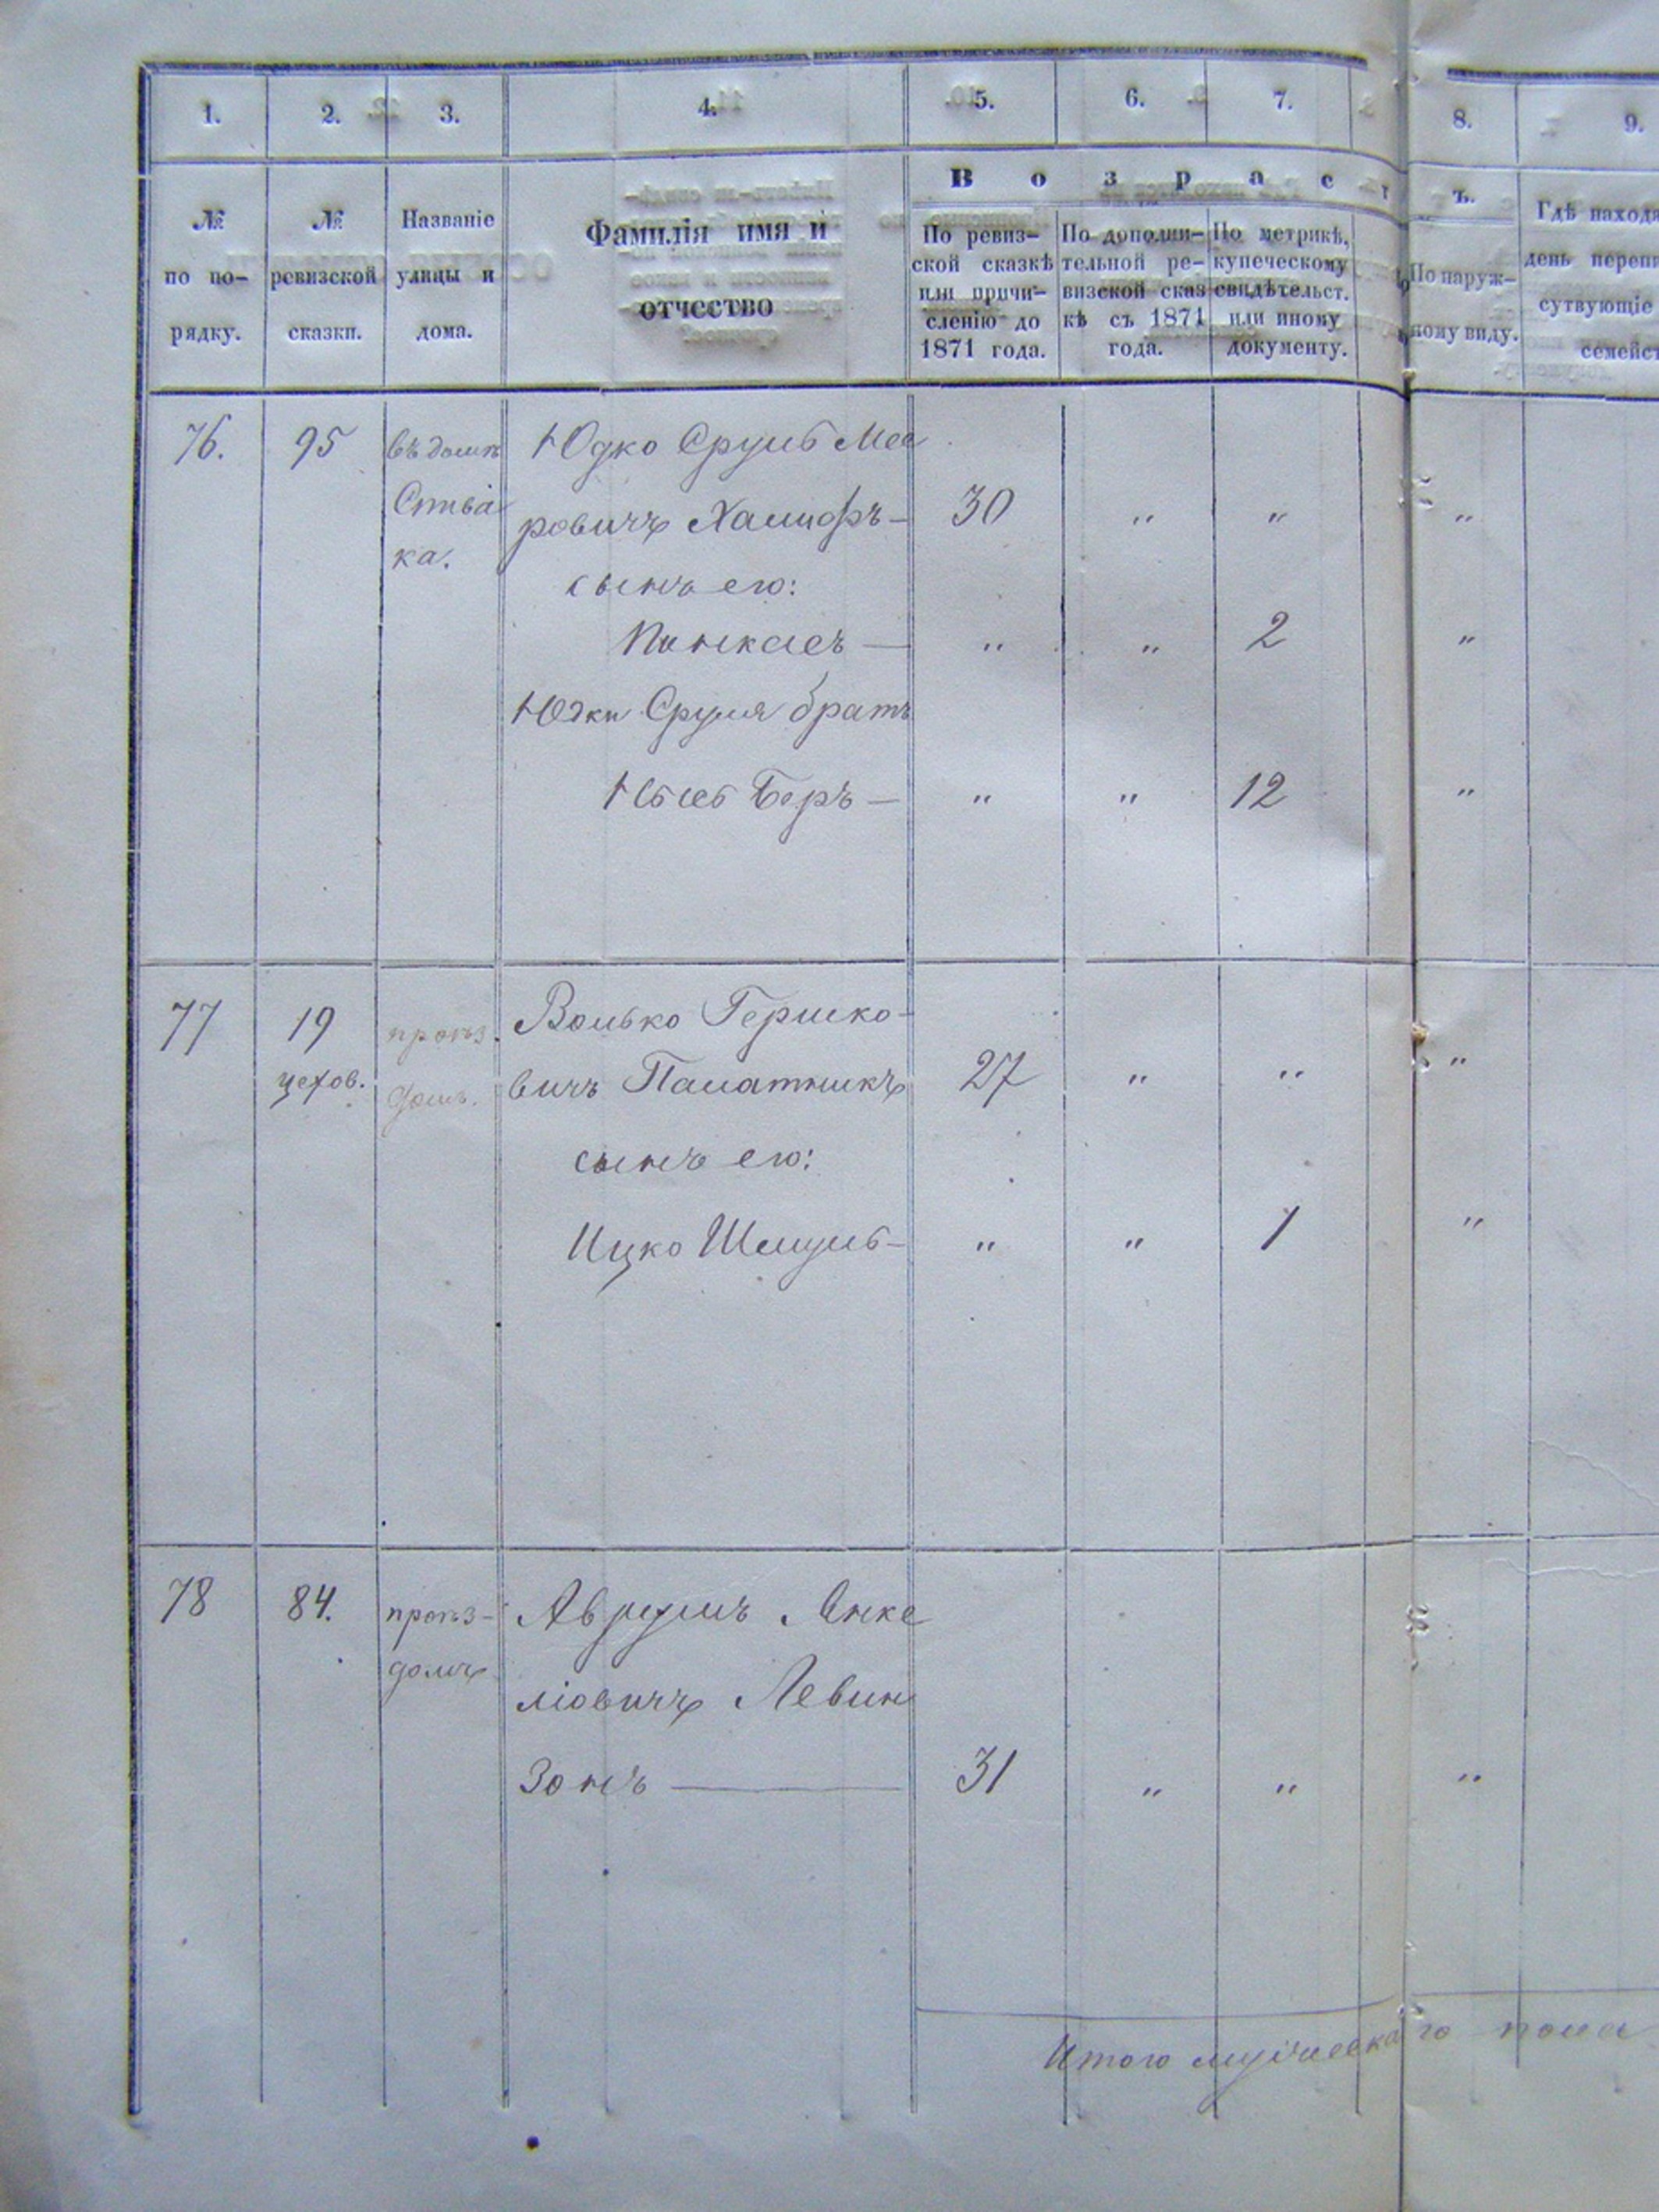 1. 2. 3. 4. 5. 6. 7. 8. 9.
В о з р а с т ъ.
№ по порядку.
№ ревизской сказки.
Названіе улицы и дома.
Фамилія имя и отчество
По ревизской сказкѣ или причисленію до 1871 года.
По дополнительной ревизской сказкѣ съ 1871 года.
По метрикѣ, купеческому свидѣтельст. или иному документу.
По наружному виду.
Гдѣ находя
день перепи
сутвующіе
семейст
76. 95 въ домѣ Юдко Сруль Мее
Спива ровичъ 30 " " "
ка.
сынъ его:
Пинкасъ — " " 2 "
Юдки Сруля братъ
Беръ — " " 12 "
77 19 проѣз. Волько Гершко-
цехов. домъ. вичъ Палатникъ 27 " " "
сынъ его:
Ицко Шмуль — " " 1 "
78 84. проѣз- Аврумъ Янке
домъ ліовичъ Левин
зонъ — 31 " " "
Итого мужескаго пола